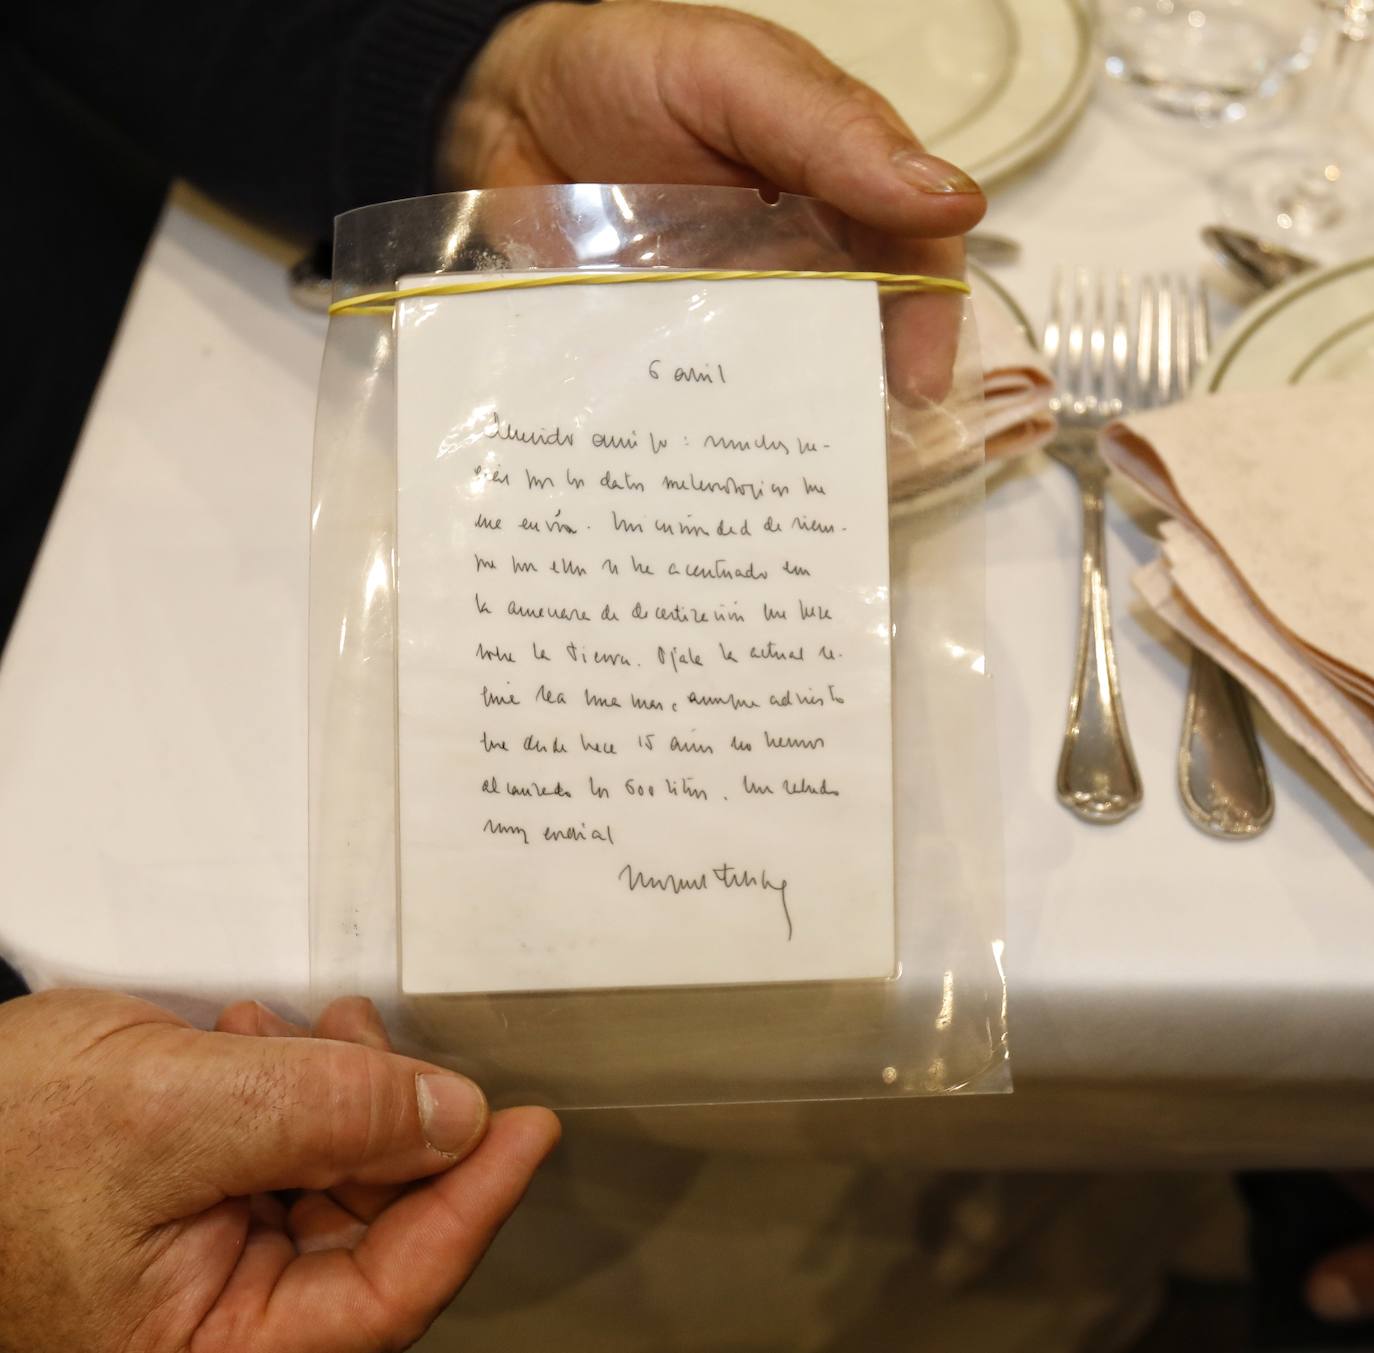 6 abril
Querido amigo: muchas gra-
cias por los datos meteorológicos que
me envía. Mi curiosidad de siem-
pre por ellos se ha acentuado con
la amenaza de desertización que pesa
sobre la Tierra. Ojala la actual se-
quía sea una más, aunque advierto
que desde hace 15 años no hemos
alcanzado los 600 litros. Un saludo
muy cordial
Miguel Delibes